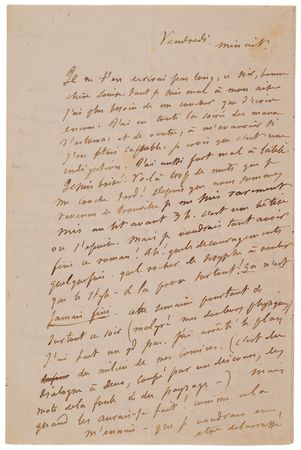 Vendredi
minuit.
Je ne t'en écrirai pas long, ce soir, bonne
chère Louise tant je suis mal à mon aise
j'ai plus besoin de me coucher que d'écrire
encore. J'ai eu toute la soirée des maux
d'estomac et de ventre, à m'évanouir si
j'en étais capable. je crois que c'est une
indigestion. J'ai aussi fort mal à la tête
Je suis brisé. Voilà trop de nuits que je
me couche tard! depuis que nous sommes
revenus de Trouville je me suis rarement
mis au lit avant 3 h. c'est une bêtise
on s'épuise. Mais je voudrais tant avoir
fini ce roman! Ah! quels découragements
quelquefois. quel rocher de Sysiphe à rouler
que le style - & la prose surtout! ça n'est
jamais fini. cette semaine pourtant &
surtout ce soir (malgré mes douleurs physiques)
J'ai fait un gd pas. J'ai arrêté le plan
du milieu de mes comices. (c'est du
dialogue à deux, coupé par un discours, des
mots de la foule & du paysage -) Mais
quand les aurai-je fait! comme cela
m'ennuie - que je voudrais en
être débarrassé